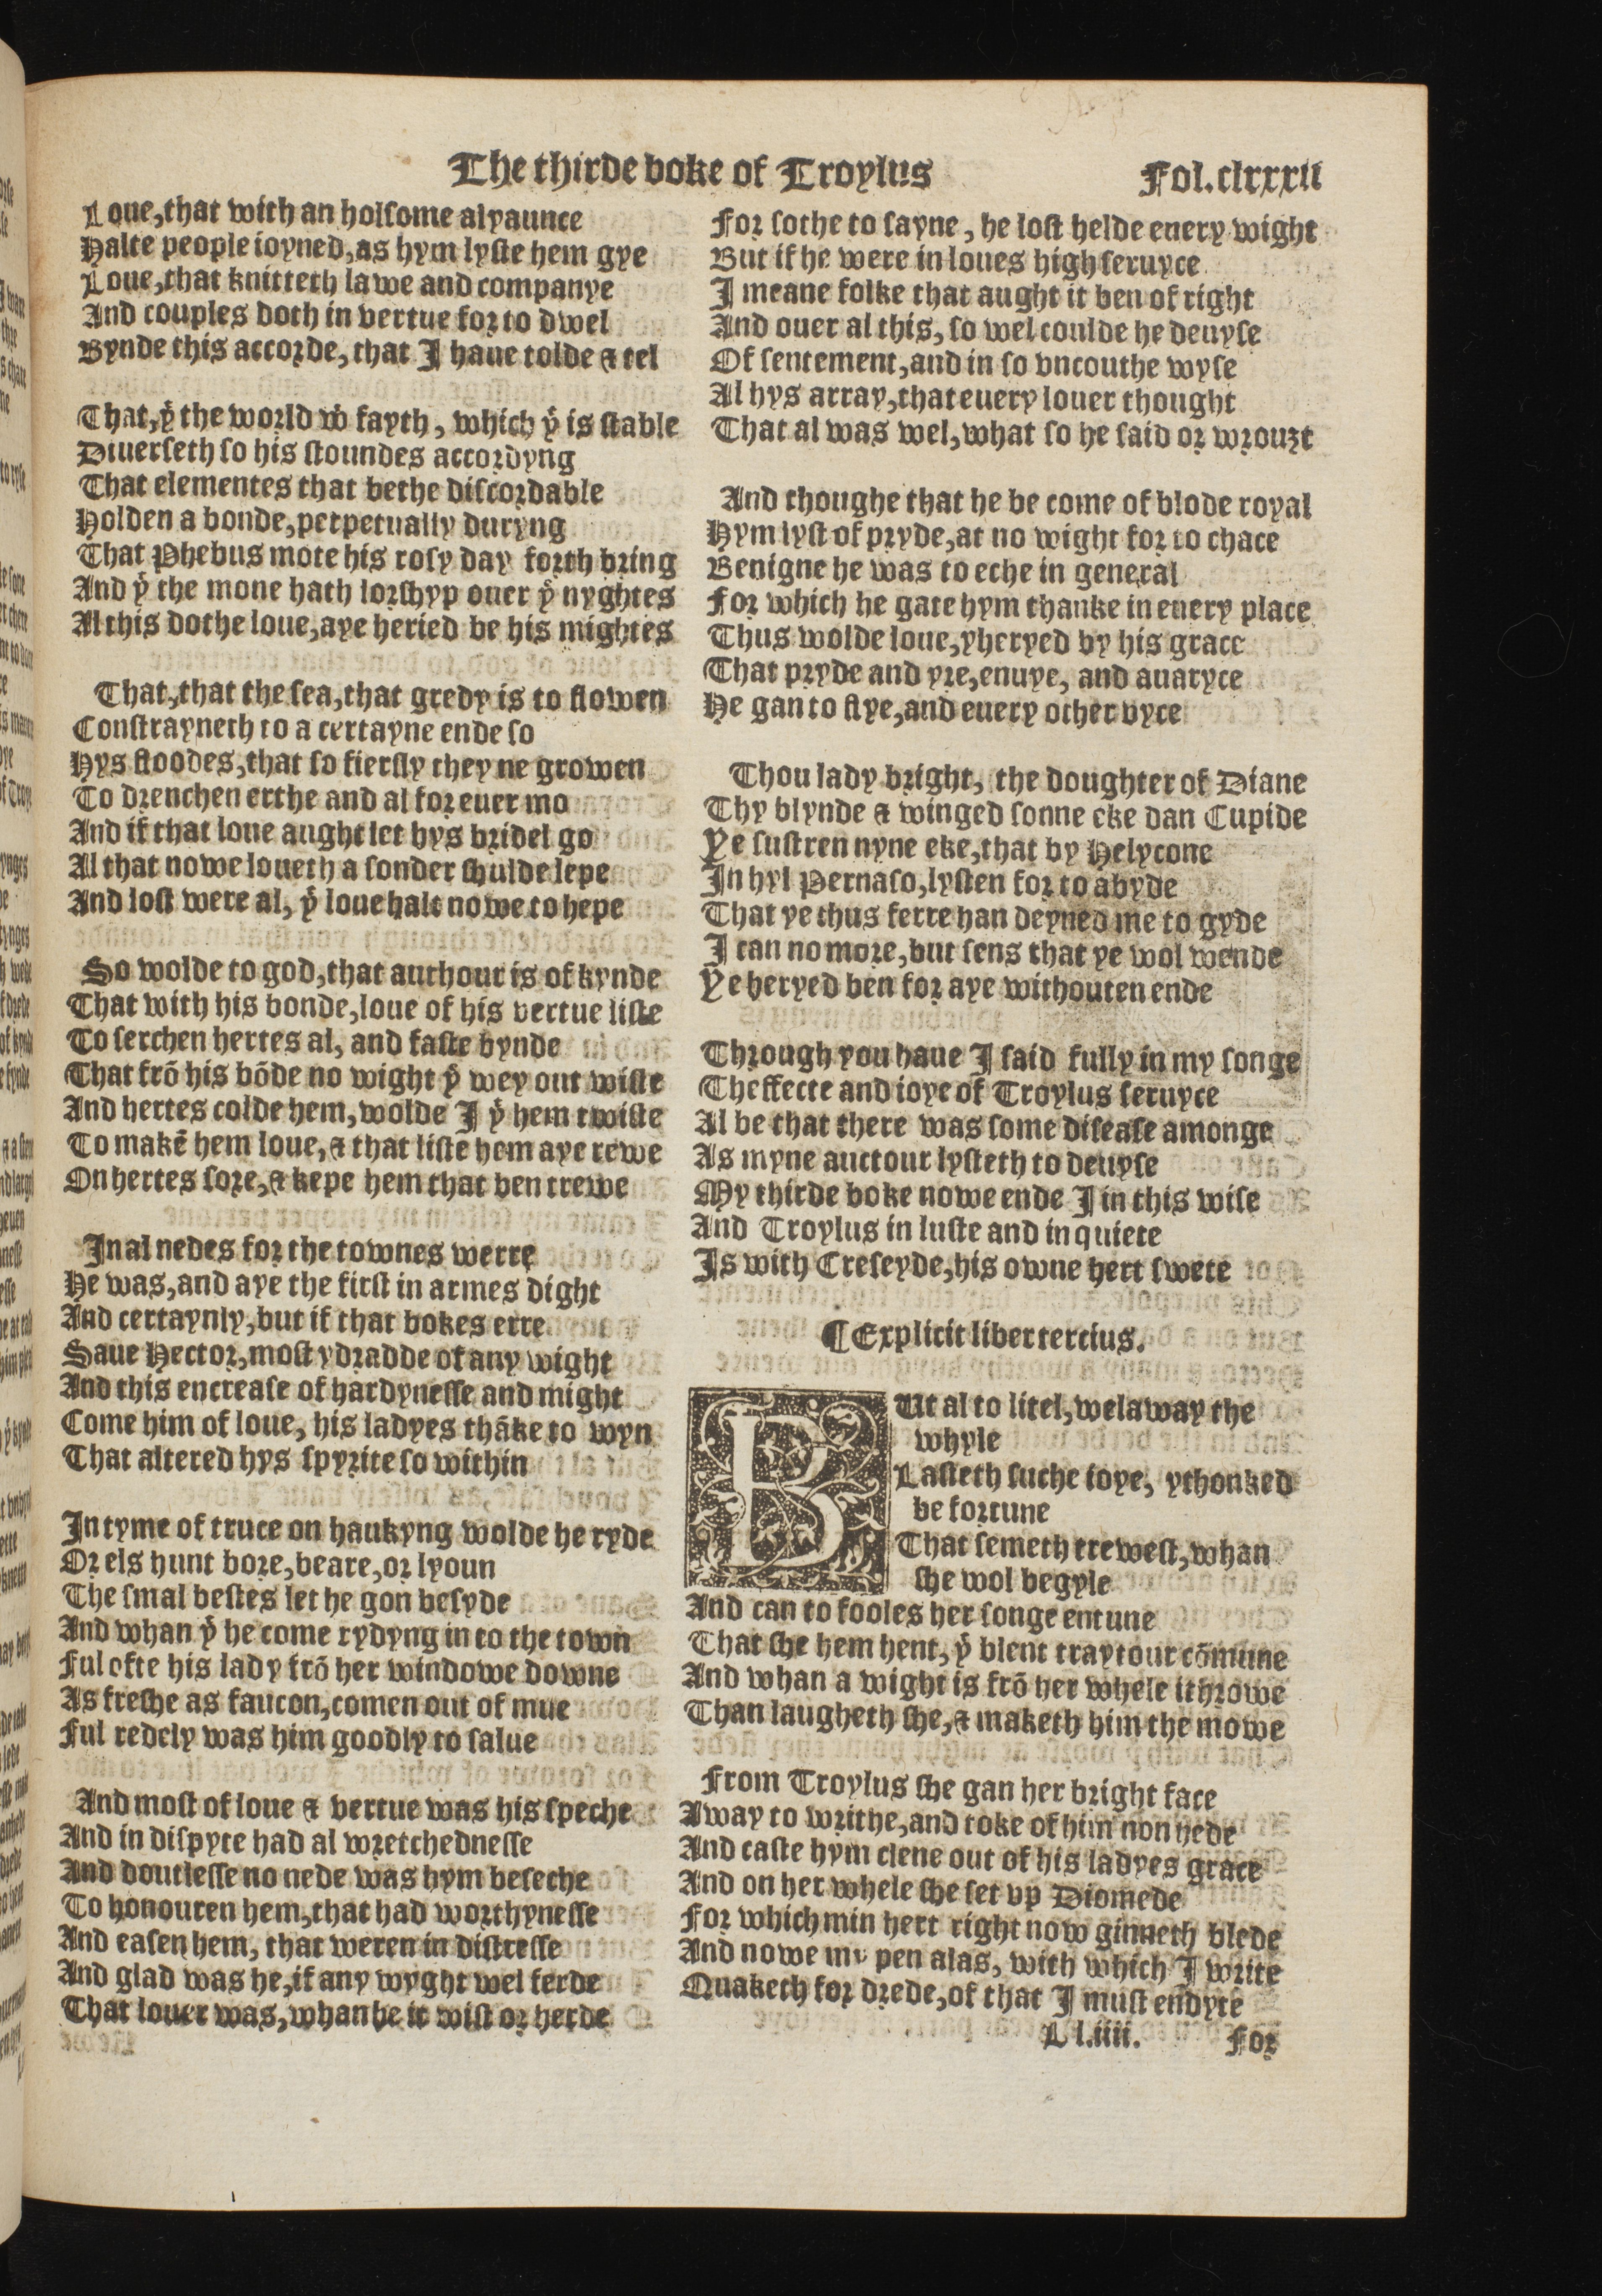 The thirde boke of Troylus
Fol. clxxxii
Loue, that with an holsome alyaunce
Halte people ioyned, as hym lyste hem gye
Loue, that knitteth lawe and companye
And couples doth in vertue for to dwel
Bynde this accorde, that I haue tolde & tel
That, yͭ the world wͭ fayth, which yͭ is stable
Diuerseth so his stoundes accordyng
That elementes that bethe discordable
Holden a bonde, perpetually duryng
That Phebus mote his rosy day forth bring
And yͭ the mone hath lorshyp ouer yͤ nyghtes
Al this dothe loue, aye heried be his mightes
That, that the sea, that gredy is to flowen
Constrayneth to a certayne ende so
Hys floodes, that so fiersly they ne growen
To drenchen erthe and al for euer mo
And if that loue aught let hys bridel go
Al that nowe loueth a sonder shulde lepe
And lost were al, yͭ loue halt nowe to hepe
So wolde to god, that authour is of kynde
That with his bonde, loue of his vertue liste
To serchen hertes al, and faste bynde
That frō his bōde no wight yͤ wey out wiste
And hertes colde hem, wolde I yͭ hem twiste
To makē hem loue, & that liste hem aye rewe
On hertes sore, & kepe hem that ben trewe
In al nedes for the townes werre
He was, and aye the first in armes dight
And certaynly, but if that bokes erre
Saue Hector, most ydradde of any wight
And this encrease of hardynesse and might
Come him of loue, his ladyes thāke to wyn
That altered hys spyrite so within
In tyme of truce on haukyng wolde he ryde
Or els hunt bore, beare, or lyoun
The smal bestes let he gon besyde
And whan yͭ he come rydyng in to the town
Ful ofte his lady frō her windowe downe
As freshe as faucon, comen out of mue
Ful redely was him goodly to salue
And most of loue & vertue was his speche
And in dispyte had al wretchednesse
And doutlesse no nede was hym beseche
To honouren hem, that had worthynesse
And easen hem, that weren in distresse
And glad was he, if any wyght wel ferde
That louer was, whan he it wist or herde
For sothe to sayne, he lost helde euery wight
But if he were in loues high seruyce
I meane folke that aught it ben of right
And ouer al this, so wel coulde he deuyse
Of sentement, and in so vncouthe wyse
Al hys array, that euery louer thought
That al was wel, what so he said or wrouzt
And thoughe that he be come of blode royal
Hym lyst of pryde, at no wight for to chace
Benigne he was to eche in general
For which he gate hym thanke in euery place
Thus wolde loue, yheryed by his grace
That pryde and yre, enuye, and auaryce
He gan to flye, and euery other vyce
Thou lady bright, the doughter of Diane
Thy blynde & winged sonne eke dan Cupide
Ye sustren nyne eke, that by Helycone
In hyl Pernaso, lysten for to abyde
That ye thus ferre han deyned me to gyde
I can no more, but sens that ye wol wende
Ye heryed ben for aye withouten ende
Through you haue I said fully in my songe
Theffecte and ioye of Troylus seruyce
Al be that there was some disease amonge
As myne auctour lysteth to deuyse
My thirde boke nowe ende I in this wise
And Troylus in luste and in quiete
Is with Creseyde, his owne hert swete
¶Explicit liber tercius.
BUt al to litel, welaway the
whyle
Lasteth suche ioye, ythonked
be fortune
That semeth trewest, whan
she wol begyle
And can to fooles her songe entune
That she hem hent, yͭ blent traytour cōmune
And whan a wight is frō her whele ithrowe
Than laugheth she, & maketh him the mowe
From Troylus she gan her bright face
Away to writhe, and toke of him non hede
And caste hym clene out of his ladyes grace
And on her whele she set vp Diomede
For which min hert right now ginneth blede
And nowe my pen alas, with which I write
Quaketh for drede, of that I must endyte
Ll.iiii.
For